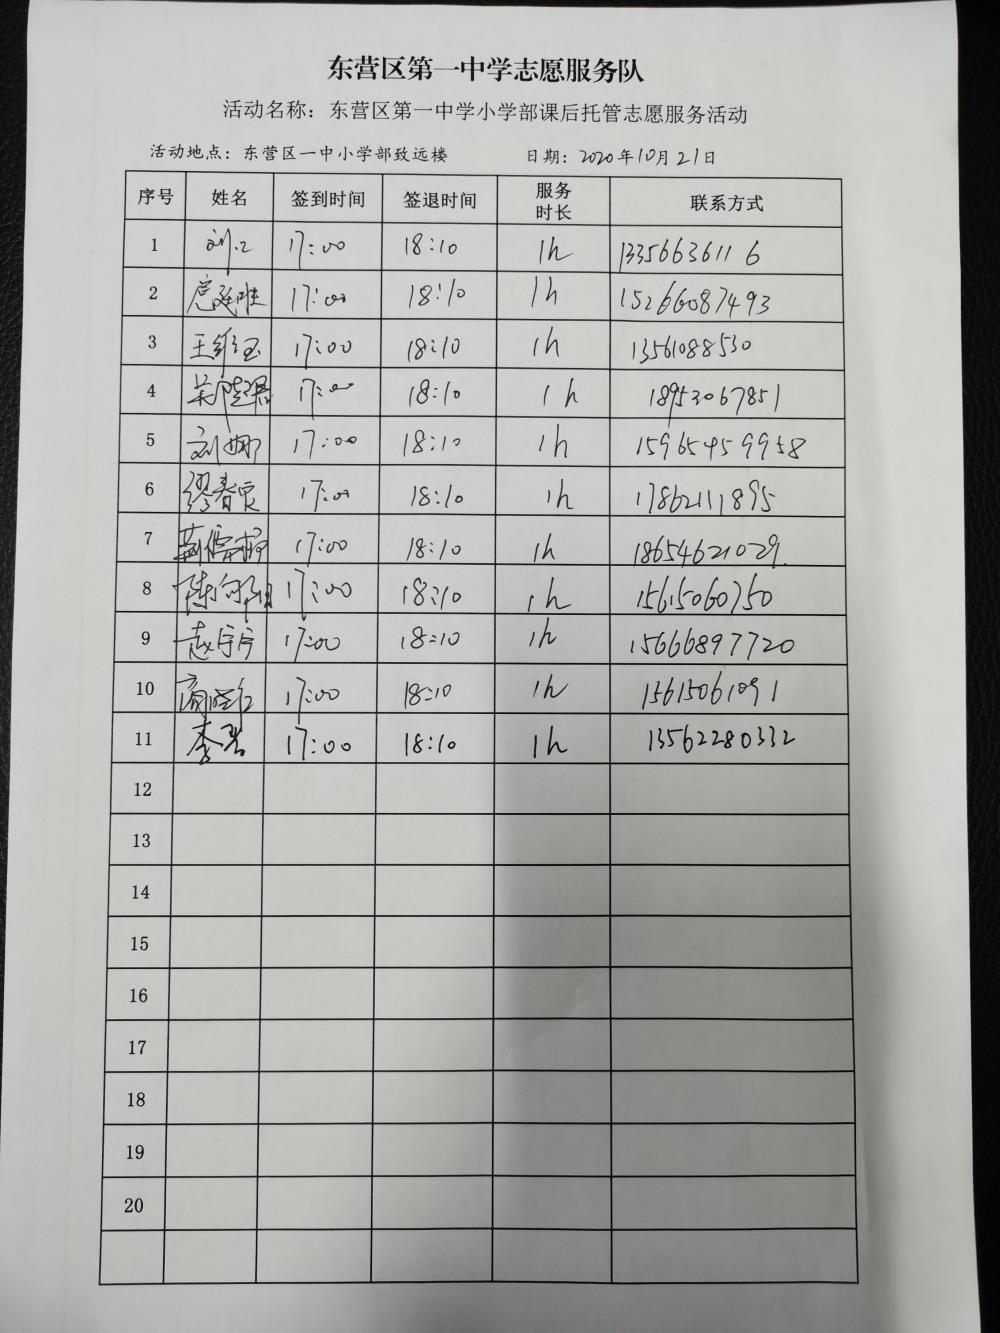 东营区第一中学志愿服务队
活动名称：东营区第一中学小学部课后托管志愿服务活动
活动地点：东营区一中小学部致远楼 日期：2020年10月21日
序号 姓名 签到时间 签退时间 服务时长 联系方式
1 17:00 18:10 1h 13356636116
2 17:00 18:10 1h 15266087493
3 17:00 18:10 1h 13561088530
4 17:00 18:10 1h 18953067851
5 刘娜 17:00 18:10 1h 15965459958
6 17:00 18:10 1h 17862111895
7 17:00 18:10 1h 18654621029
8 陈向阳 17:00 18:10 1h 15615060750
9 17:00 18:10 1h 15666897720
10 17:00 18:10 1h 15615061091
11 17:00 18:10 1h 13562280332
12
13
14
15
16
17
18
19
20